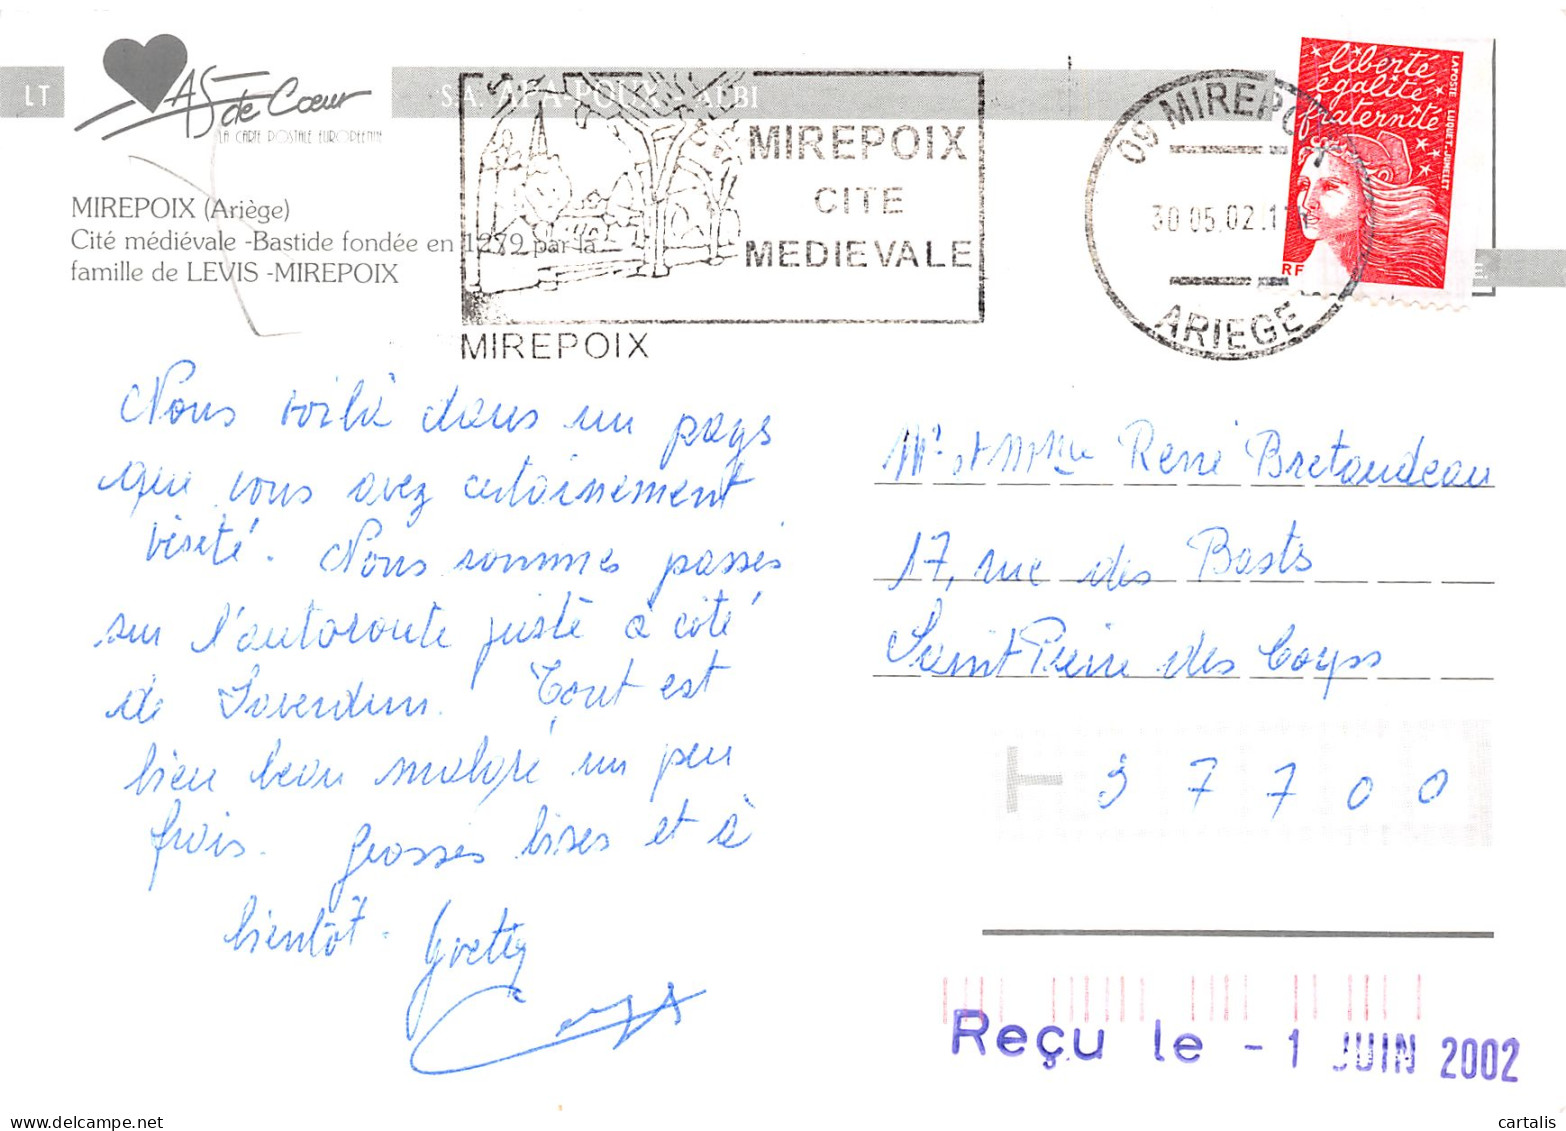 AS de Cœur
LA CARTE POSTALE EUROPEENNE
LT
S.A. APA-POUX ALBI
MIREPOIX (Ariège)
Cité médiévale -Bastide fondée en 1279 par la
famille de LEVIS -MIREPOIX
MIREPOIX
CITE
MEDIEVALE
MIREPOIX
09 MIREPOIX
30.05.02.17H
ARIEGE
liberté
égalité
fraternité
LA POSTE LUQUET-JUMELET
RF
Nous voilà dans un pays
que vous avez certainement
visité. Nous sommes passés
sur l'autoroute juste à côté
de Saverdun. Tout est
bien beau malgré un peu
frois. Grosses bises et à
bientôt. Yvette
Mr et Mme René Bretaudeau
17, rue des Basts
Saint Pierre des Corps
37700
Reçu le - 1 JUIN 2002
cartalis